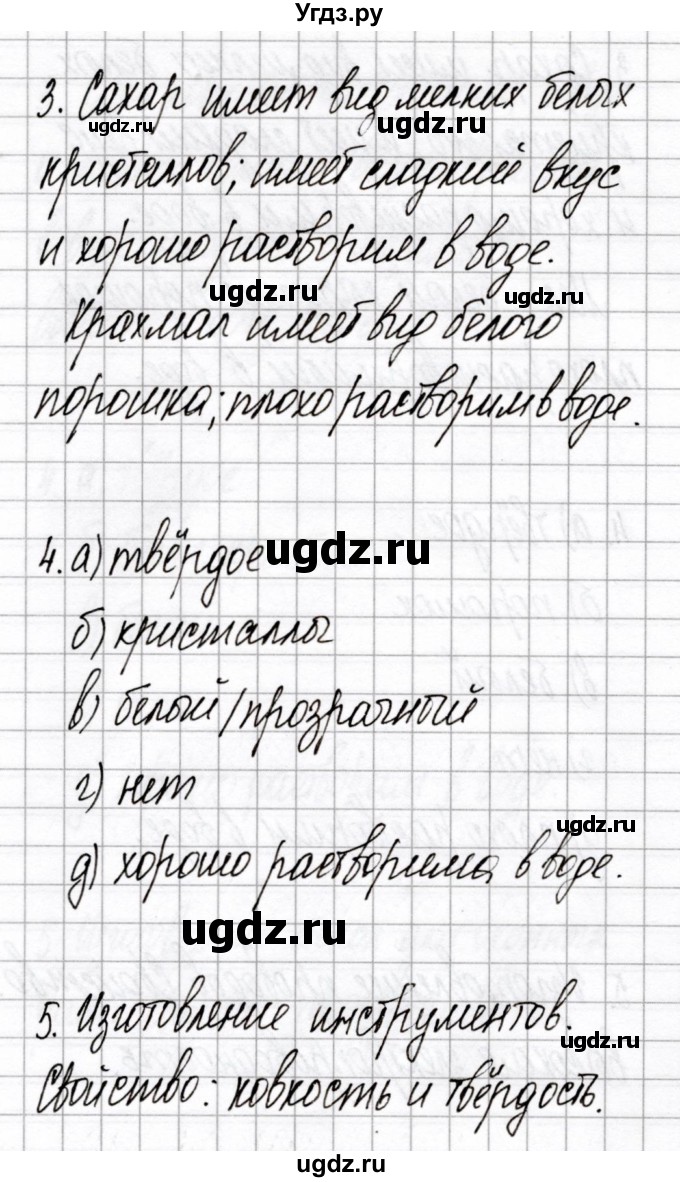 Угдз.ру
3. Сахар имеет вид мелких белых
ugdz.ru ugdz.ru
кристаллов; имеет сладкий вкус
и хорошо растворим в воде.
ugdz.ru ugdz.ru
Крахмал имеет вид белого
порошка; плохо растворим в воде.
4. а) твёрдое ugdz.ru
б) кристаллы
в) белый/прозрачный
г) нет
ugdz.ru
д) хорошо растворима в воде.
ugdz.ru
5. Изготовление инструментов.
ugdz.ru
Свойство: ковкость и твёрдость.
ugdz.ru